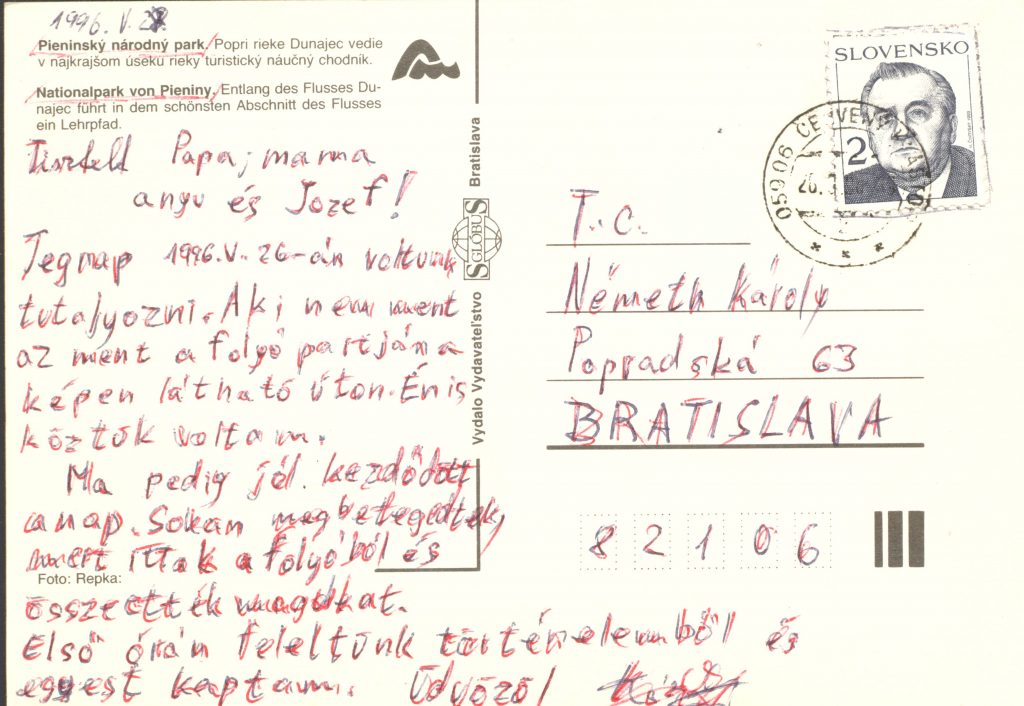 1996. V. 27.
Pieninský národný park. Popri rieke Dunajec vedie
v najkrajšom úseku rieky turistický náučný chodník.
Nationalpark von Pieniny. Entlang des Flusses Du-
najec führt in dem schönsten Abschnitt des Flusses
ein Lehrpfad.
Tisztelt Papa, mama
anyu és Jozef!
Tegnap 1996.V. 26-án voltunk
tutajyozni. Aki nem ment
az ment a folyó partján a
képen látható úton. Én is
köztük voltam.
Ma pedig jól kezdődött
a nap. Sokan megbetegedtek,
mert ittak a folyóból és
összeették magukat.
Első órán feleltünk történelemből és
egyest kaptam. Üdvözöl
Foto: Repka:
Vydalo Vydavateľstvo
GLÓBUS
Bratislava
SLOVENSKO
2
059 06
T. C.
Németh Károly
Popradská 63
BRATISLAVA
82106